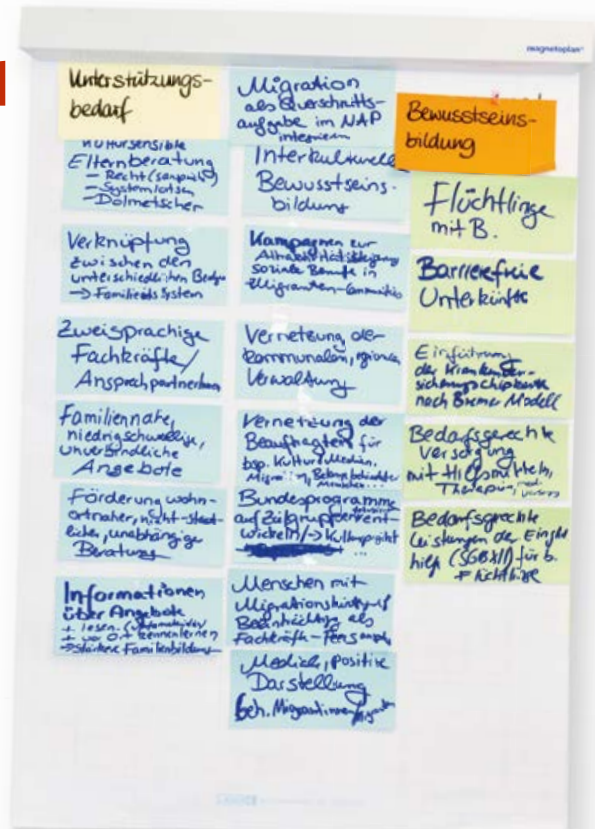 magnetoplan
Unterstützungs-
bedarf
Kultursensible
Elternberatung
– Recht
– Systemlotsen
– Dolmetscher
Verknüpfung
zwischen den
unterschiedlichen
→ Familie als System
Zweisprachige
Fachkräfte/
Ansprechpartner
Familiennahe,
niedrigschwellige,
unverbindliche
Angebote
Förderung wohn-
ortnaher, nicht-staat-
licher, unabhängige
Beratung
Informationen
über Angebote
+ lesen
+ vor Ort kennenlernen
→ stärkere Familienbildung
Migration
als Querschnitts-
aufgabe im NAP
integrieren
Interkulturelle
Bewusstseins-
bildung
Kampagnen zur
soziale Berufe in
Migranten-Communities
Vernetzung der
kommunalen,
Verwaltung
Vernetzung der
Beauftragten für
bsp. Kultur, Medien,
Migration, Belange behinderter
Menschen...
Bundesprogramme
auf Zielgruppen
wickeln → Kulturprojekt
...
Menschen mit
Migrationshintergrund
als
Fachkräfte
Mediale, positive
Darstellung
beh. Migrantinnen
Bewusstseins-
bildung
Flüchtlinge
mit B.
Barrierefreie
Unterkünfte
Einführung
der Kranken
sicherungschipkarte
nach Bremer Modell
Bedarfsgerechte
Versorgung
mit Hilfsmitteln,
Therapien,
Bedarfsgerechte
Leistungen der
hilfe (SGB XII) für b.
Flüchtlinge